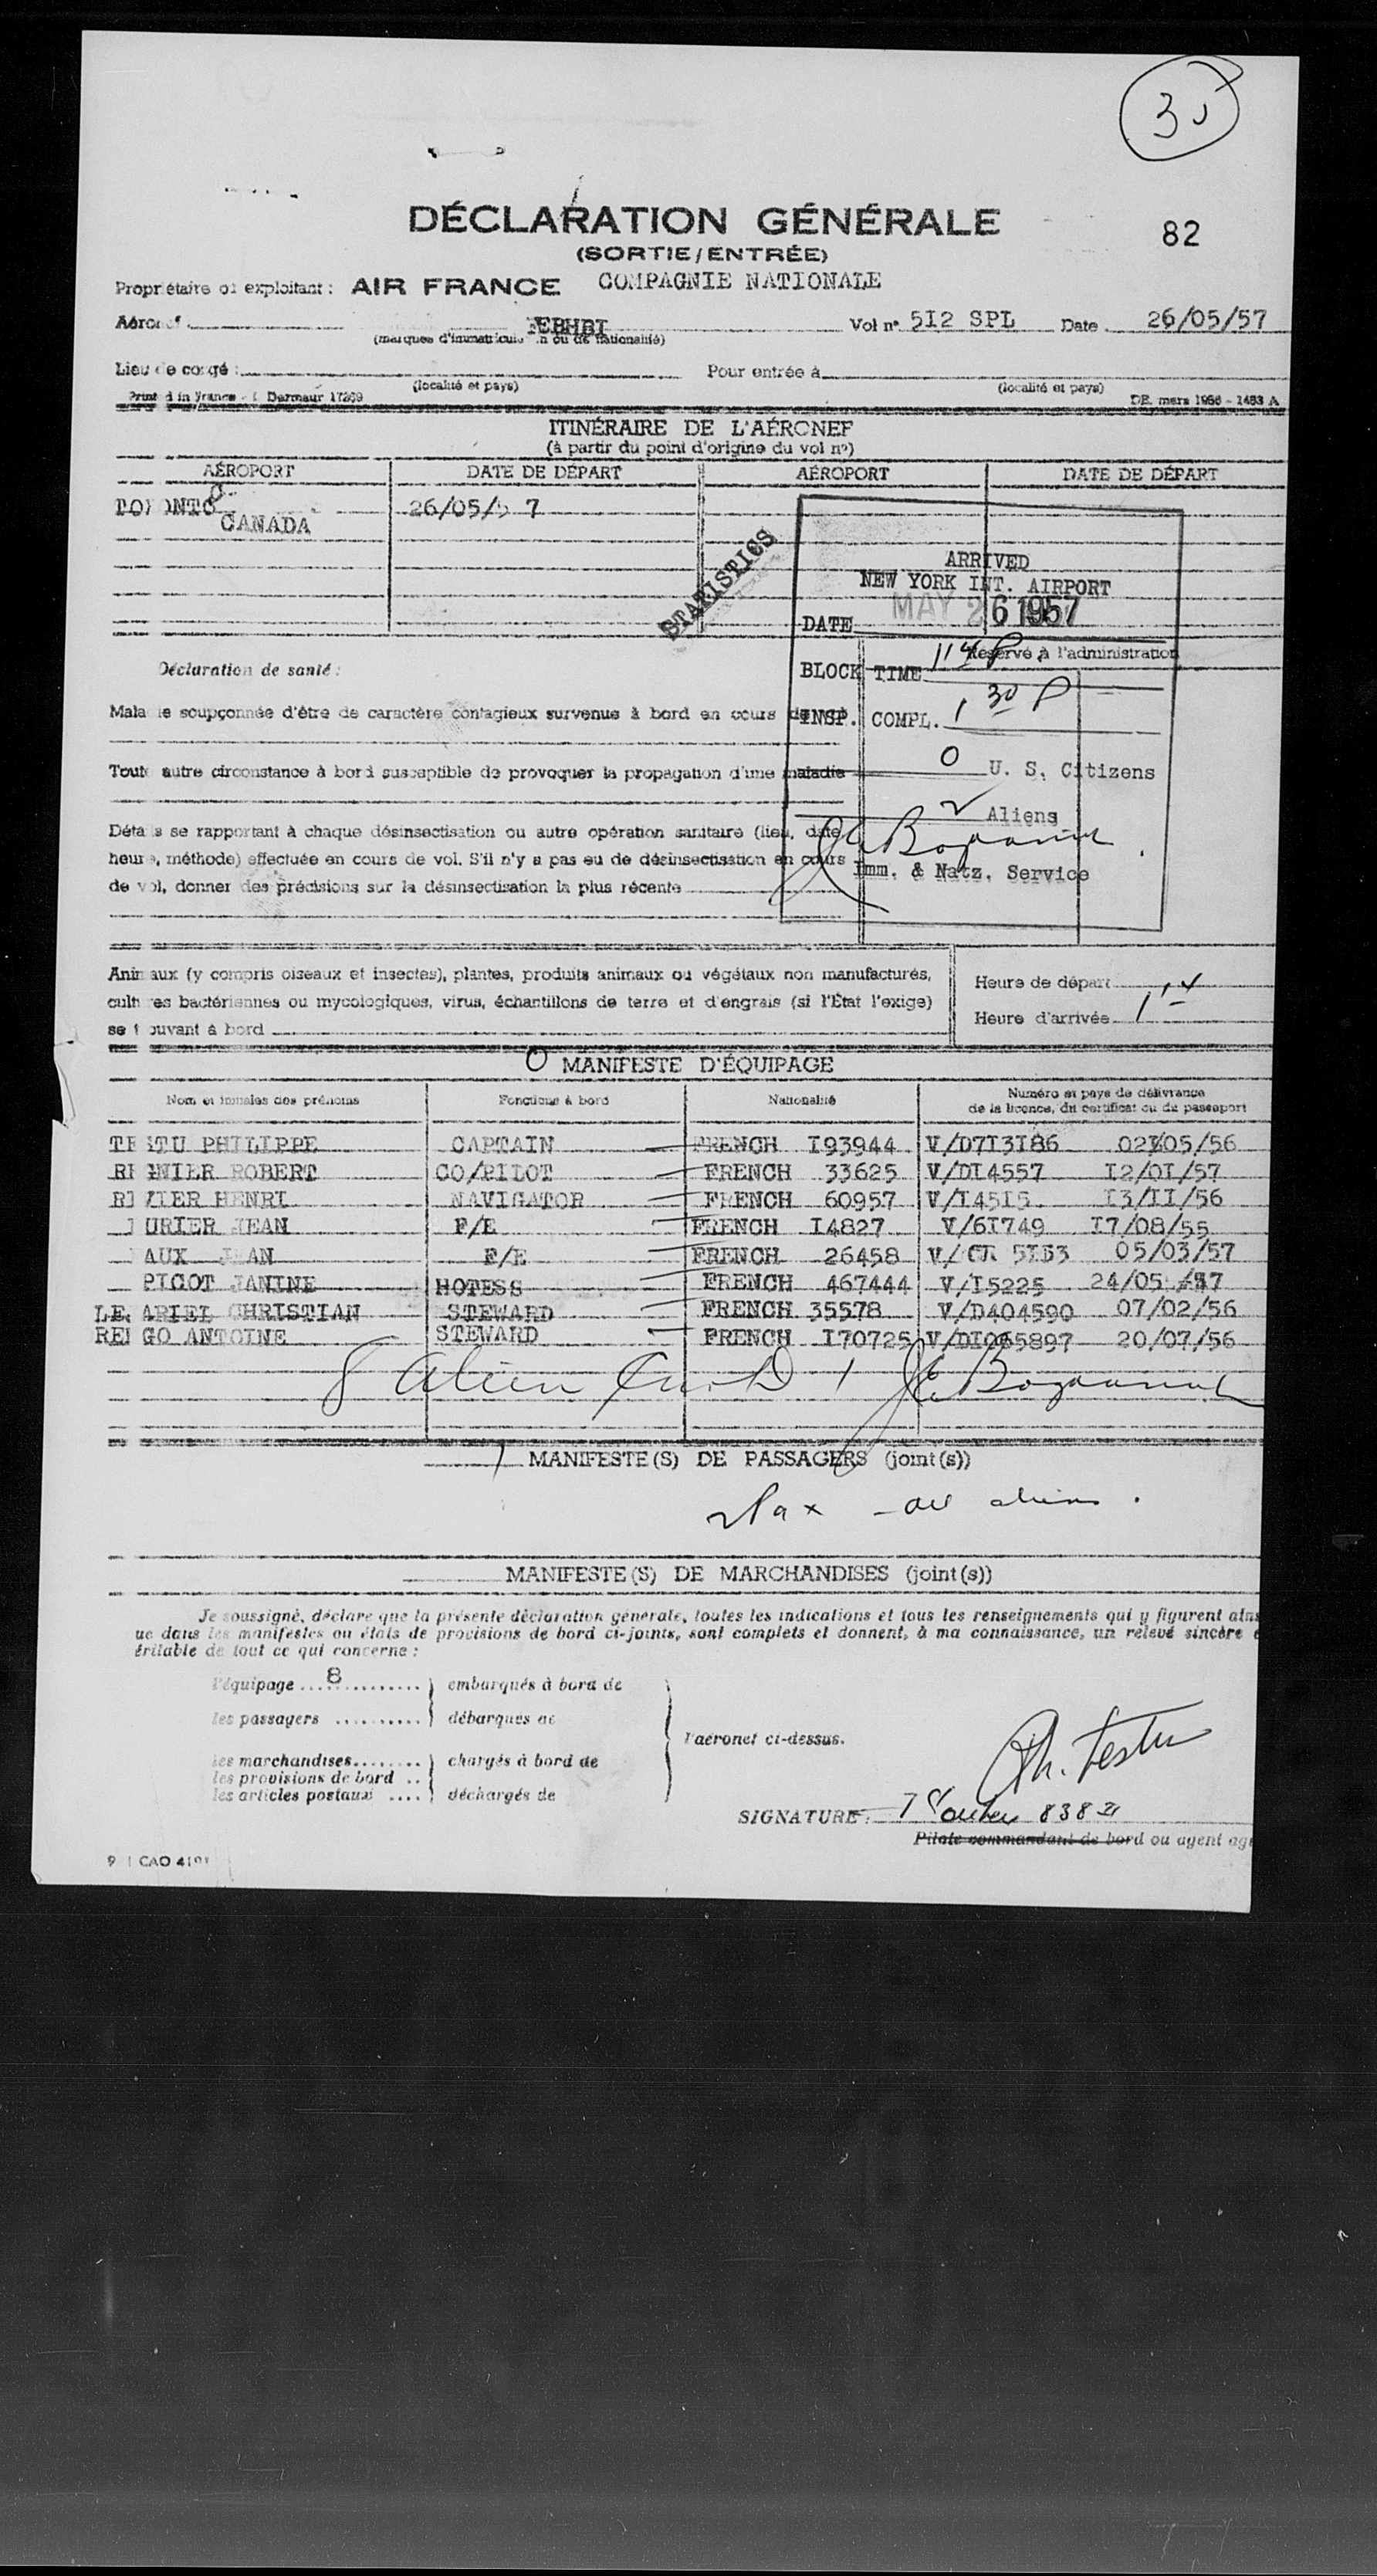 DÉCLARATION GÉNÉRALE
82
(SORTIE/ENTRÉE)
Propriétaire ou exploitant : AIR FRANCE COMPAGNIE NATIONALE
Aéronef
Vol n° 5I2 SPL Date 26/05/57
Lieu de congé : Pour entrée à
(localité et pays) (localité et pays)
DE. mars 1956 - 1483 A
ITINÉRAIRE DE L'AÉRONEF
(à partir du point d'origine du vol nº)
AÉROPORT DATE DE DÉPART AÉROPORT DATE DE DÉPART
TORONTO 26/05/57
CANADA
STATISTICS
ARRIVED
NEW YORK INT. AIRPORT
DATE MAY 26 1957
Réservé à l'administration
Déclaration de santé :
BLOCK TIME
Maladie soupçonnée d'être de caractère contagieux survenue à bord en cours
INSP. COMPL. 1 30 P
Toute autre circonstance à bord susceptible de provoquer la propagation d'une maladie
0 U. S. Citizens
Aliens
Détails se rapportant à chaque désinsectisation ou autre opération sanitaire (lieu, date,
heure, méthode) effectuée en cours de vol. S'il n'y a pas eu de désinsectisation en cours
Imm. & Natz. Service
de vol, donner des précisions sur la désinsectisation la plus récente
Animaux (y compris oiseaux et insectes), plantes, produits animaux ou végétaux non manufacturés,
cultures bactériennes ou mycologiques, virus, échantillons de terre et d'engrais (si l'État l'exige)
se trouvant à bord
Heure de départ
Heure d'arrivée
MANIFESTE D'ÉQUIPAGE
Nom et initiales des prénoms Fonctions à bord Nationalité Numéro et pays de délivrance
de la licence, du certificat ou du passeport
TESTU PHILIPPE CAPTAIN FRENCH I93944 V/D7I3I86 02/05/56
ROBERT CO/PILOT FRENCH 33625 V/DI4557 I2/OI/57
HENRI NAVIGATOR FRENCH 60957 V/I45I5 I3/II/56
URIER JEAN F/E FRENCH I4827 V/6I749 I7/08/55
AUX JEAN F/E FRENCH 26458 V/ 05/03/57
PICOT JANINE HOTESS FRENCH 467444 V/I5225 24/05/57
CHRISTIAN STEWARD FRENCH 35578 V/D404590 07/02/56
GO ANTOINE STEWARD FRENCH I70725 20/07/56
8 Alien
MANIFESTE(S) DE PASSAGERS (joint(s))
MANIFESTE(S) DE MARCHANDISES (joint(s))
Je soussigné, déclare que la présente déclaration générale, toutes les indications et tous les renseignements qui y figurent ains
ue dans les manifestes ou états de provisions de bord ci-joints, sont complets et donnent, à ma connaissance, un relevé sincère e
éritable de tout ce qui concerne :
l'équipage ...8............ embarqués à bord de
les passagers .......... débarqués de
l'aéronef ci-dessus.
les marchandises........ chargés à bord de
les provisions de bord ..
les articles postaux .... déchargés de
Ph. Testu
SIGNATURE :
Pilote commandant de bord ou agent ag